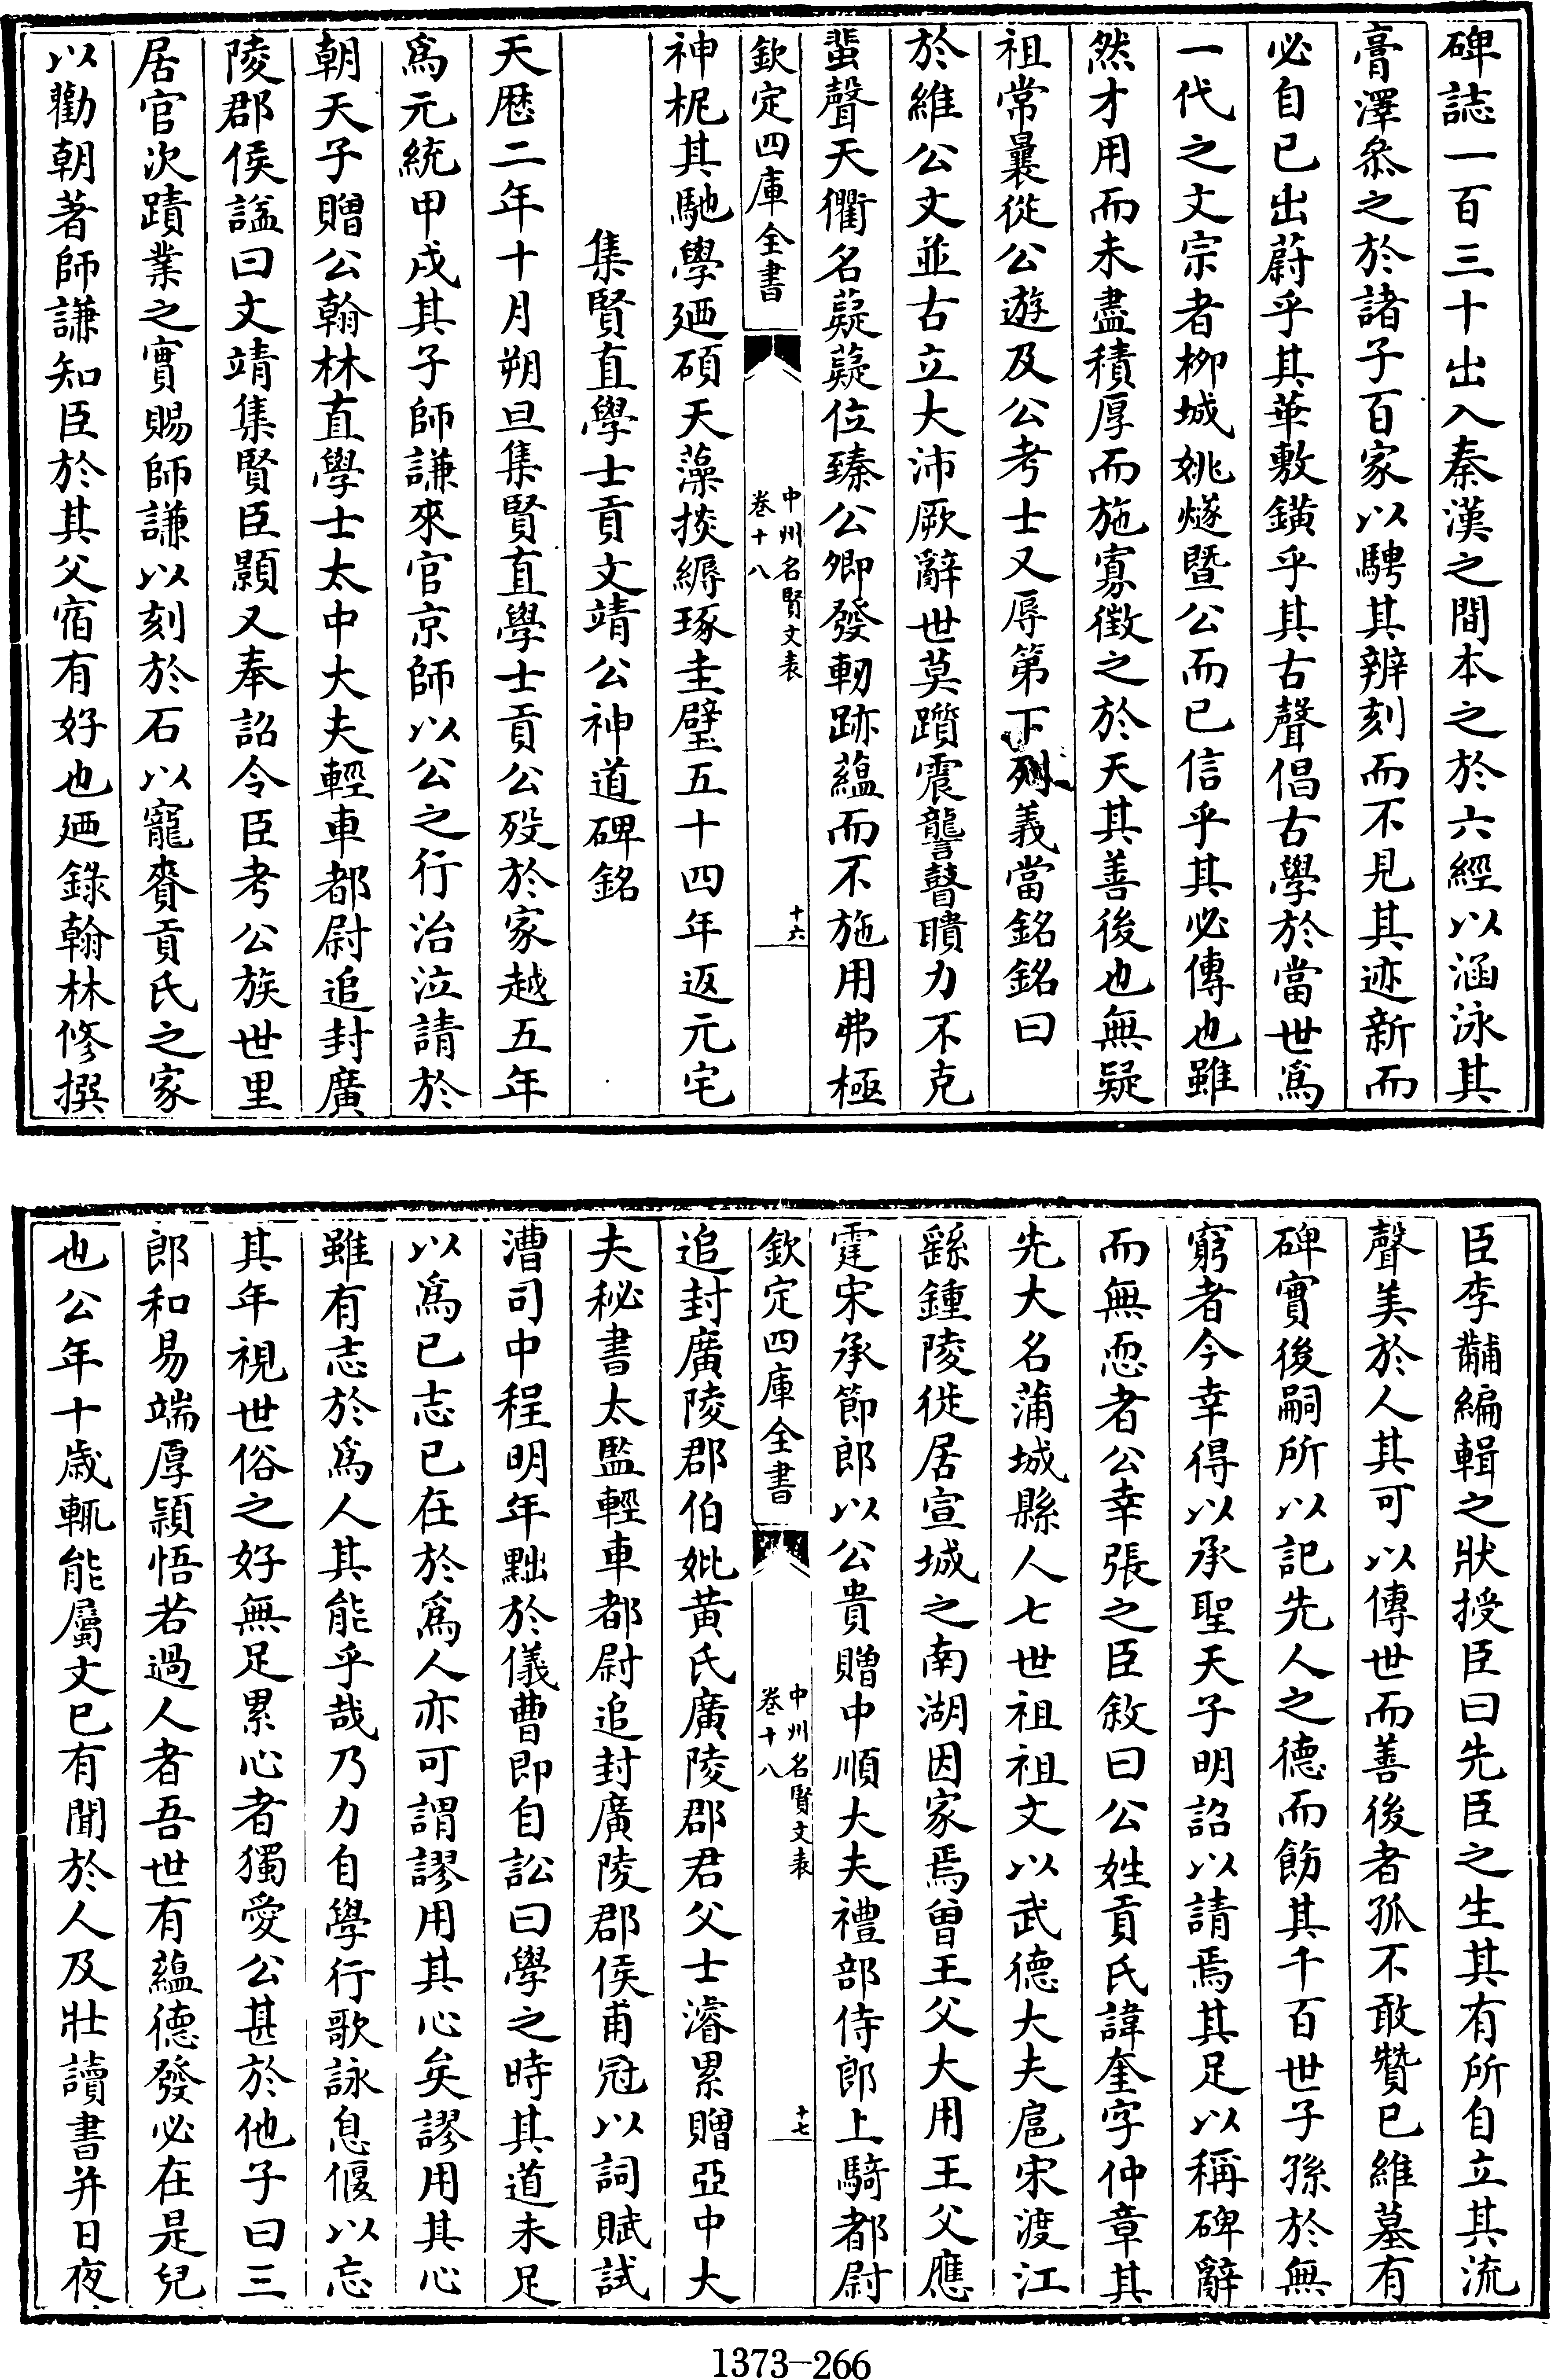 碑誌一百三十出入秦漢之間本之於六經以涵泳其
膏澤叅之於諸子百家以騁其辨刻而不見其迹新而
必自已出蔚乎其華敷鏆乎其古聲倡古學於當世爲
一代之文宗者柳城姚燧暨公而已信乎其必傳也雖
然才用而未盡積厚而施寡徴之於天其善後也無疑
祖常曩從公遊及公考士又辱第下列義當銘銘曰
於維公文並古立大沛厥辭世莫躓震聾瞽瞶力不克
蜚聲天衢名薿薿位臻公卿發軔跡藴而不施用弗極
欽定四庫全書
中州名賢文表
卷十八
十六
神柅其馳學廼碩天藻掞縟琢圭璧五十四年返元宅
集賢直學士貢文靖公神道碑銘
天厯二年十月朔旦集賢直學士貢公殁於家越五年
爲元統甲戌其子師謙來官京師以公之行治泣請於
朝天子贈公翰林直學士太中大夫輕車都尉追封廣
陵郡侯諡曰文靖集賢臣顥又奉詔令臣考公族世里
居官次蹟業之實賜師謙以刻於石以寵賚貢氏之家
以勸朝著師謙知臣於其父宿有好也廼錄翰林修撰
臣李黼編輯之狀授臣曰先臣之生其有所自立其流
聲美於人其可以傳世而善後者孤不敢贊已維墓有
碑實後嗣所以記先人之德而飭其千百世子孫於無
窮者今幸得以承聖天子明詔以請焉其足以稱碑辭
而無恧者公幸張之臣敘曰公姓貢氏諱奎字仲章其
先大名蒲城縣人七世祖祖文以武德大夫扈宋渡江
繇鍾陵徙居宣城之南湖因家焉曾王父大用王父應
霆宋承節郎以公貴贈中順大夫禮部侍郎上騎都尉
欽定四庫全書
中州名賢文表
卷十八
十七
追封廣陵郡伯妣黄氏廣陵郡君父士濬累贈亞中大
夫秘書太監輕車都尉追封廣陵郡侯甫冠以詞賦試
漕司中程明年黜於儀曹即自訟曰學之時其道未足
以爲已志已在於爲人亦可謂謬用其心矣謬用其心
雖有志於爲人其能乎哉乃力自學行歌詠息偃以忘
其年視世俗之好無足累心者獨愛公甚於他子曰三
郎和易端厚頴悟若過人者吾世有藴德發必在是兒
也公年十歲輒能屬文已有聞於人及壯讀書并日夜
1373—266